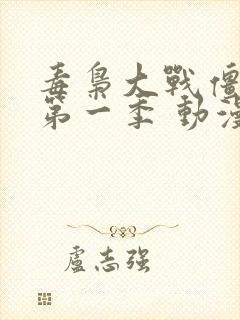 毒梟大戰僵
第一季 動漫
盧志强